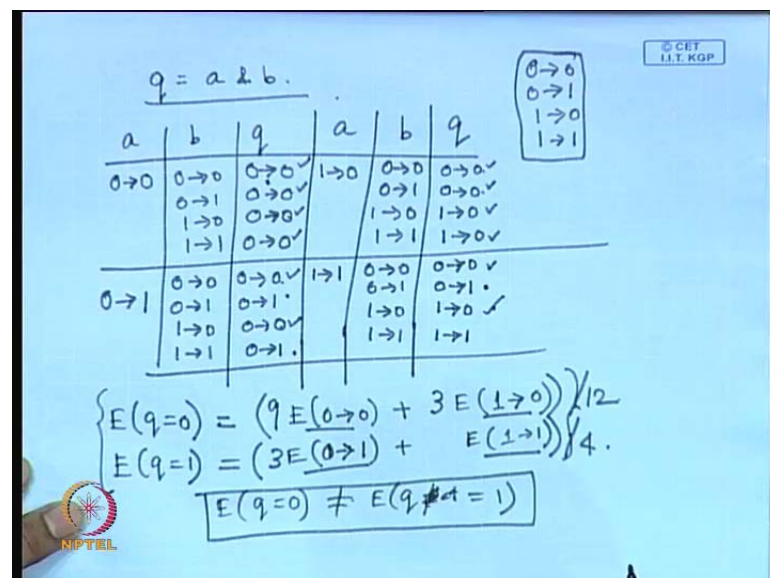 © CET
I.I.T. KGP
q = a & b.
0→0
0→1
1→0
1→1
a | b | q | a | b | q
0→0 | 0→0 | 0→0 ✓ | 1→0 | 0→0 | 0→0. ✓
0→1 | 0→0 ✓ | 0→1 | 0→0. ✓
1→0 | 0→0 ✓ | 1→0 | 1→0 ✓
1→1 | 0→0 ✓ | 1→1 | 1→0 ✓
0→1 | 0→0 | 0→0. ✓ | 1→1 | 0→0 | 0→0 ✓
0→1 | 0→1 . | 0→1 | 0→1 .
1→0 | 0→0 ✓ | 1→0 | 1→0 ✓
1→1 | 0→1 . | 1→1 | 1→1
E(q=0) = (9E(0→0) + 3E(1→0))/12
E(q=1) = (3E(0→1) + E(1→1))/4.
E(q=0) ≠ E(q = 1)
NPTEL